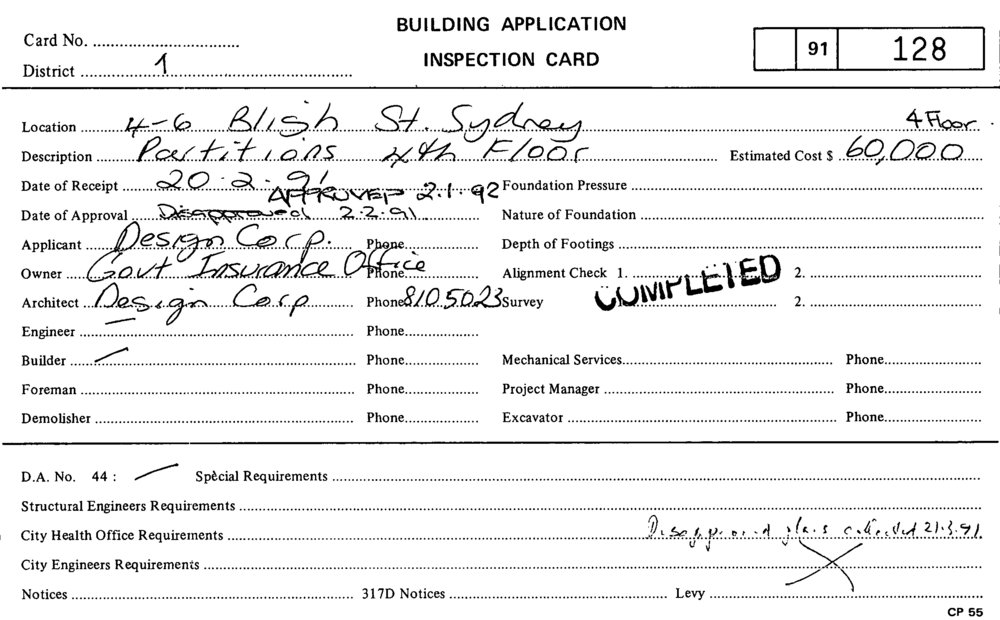 BUILDING APPLICATION
INSPECTION CARD
Card No.
District 1
91 128
4 Floor
Location 4-6 Bligh St. Sydney
Description Partitions 4th Floor Estimated Cost $ 60,000
Date of Receipt 20.2.91 Foundation Pressure
APPROVED 2.1.92
Date of Approval Disapproved 2.2.91 Nature of Foundation
Applicant Design Corp. Phone Depth of Footings
Owner Govt Insurance Office Phone Alignment Check 1. 2.
COMPLETED
Architect Design Corp Phone 8105023 Survey 2.
Engineer Phone
Builder Phone Mechanical Services Phone
Foreman Phone Project Manager Phone
Demolisher Phone Excavator Phone
D.A. No. 44 : Special Requirements
Structural Engineers Requirements
City Health Office Requirements Disapproved plans collected 21.3.91
City Engineers Requirements
Notices 317D Notices Levy
CP 55